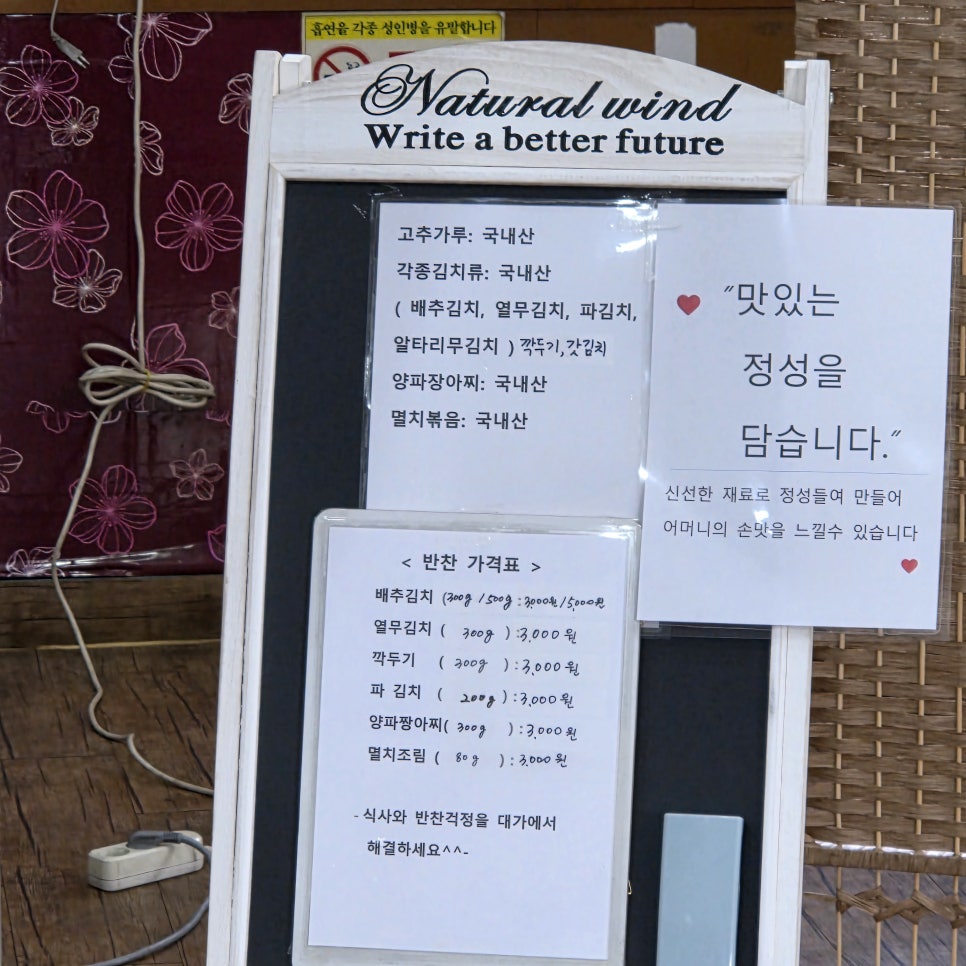 흡연은 각종 성인병을 유발합니다
Natural wind
Write a better future
고추가루: 국내산
각종김치류: 국내산
( 배추김치, 열무김치, 파김치,
알타리무김치 ) 깍두기, 갓김치
양파장아찌: 국내산
멸치볶음: 국내산
"맛있는
정성을
담습니다."
신선한 재료로 정성들여 만들어
어머니의 손맛을 느낄수 있습니다
< 반찬 가격표 >
배추김치 (300g / 500g : 3,000원 / 5,000원
열무김치 ( 300g ) : 3,000 원
깍두기 ( 300g ) : 3,000 원
파 김치 ( 200g ) : 3,000 원
양파짱아찌( 300g ) : 3,000 원
멸치조림 ( 80g ) : 3,000 원
- 식사와 반찬걱정을 대가에서
해결하세요^^-